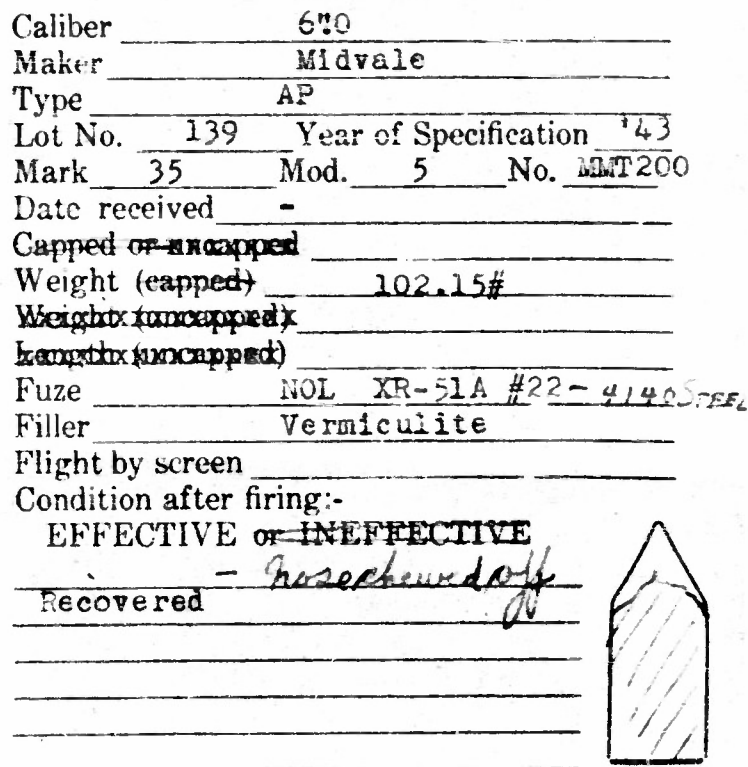 Caliber 6"0
Maker Midvale
Type AP
Lot No. 139 Year of Specification '43
Mark 35 Mod. 5 No. MMT200
Date received -
Capped or uncapped
Weight (capped) 102.15#
Weight (uncapped)
Length (uncapped)
Fuze NOL XR-51A #22- 4140 STEEL
Filler Vermiculite
Flight by screen
Condition after firing:-
EFFECTIVE or INEFFECTIVE
- nose chewed off
Recovered